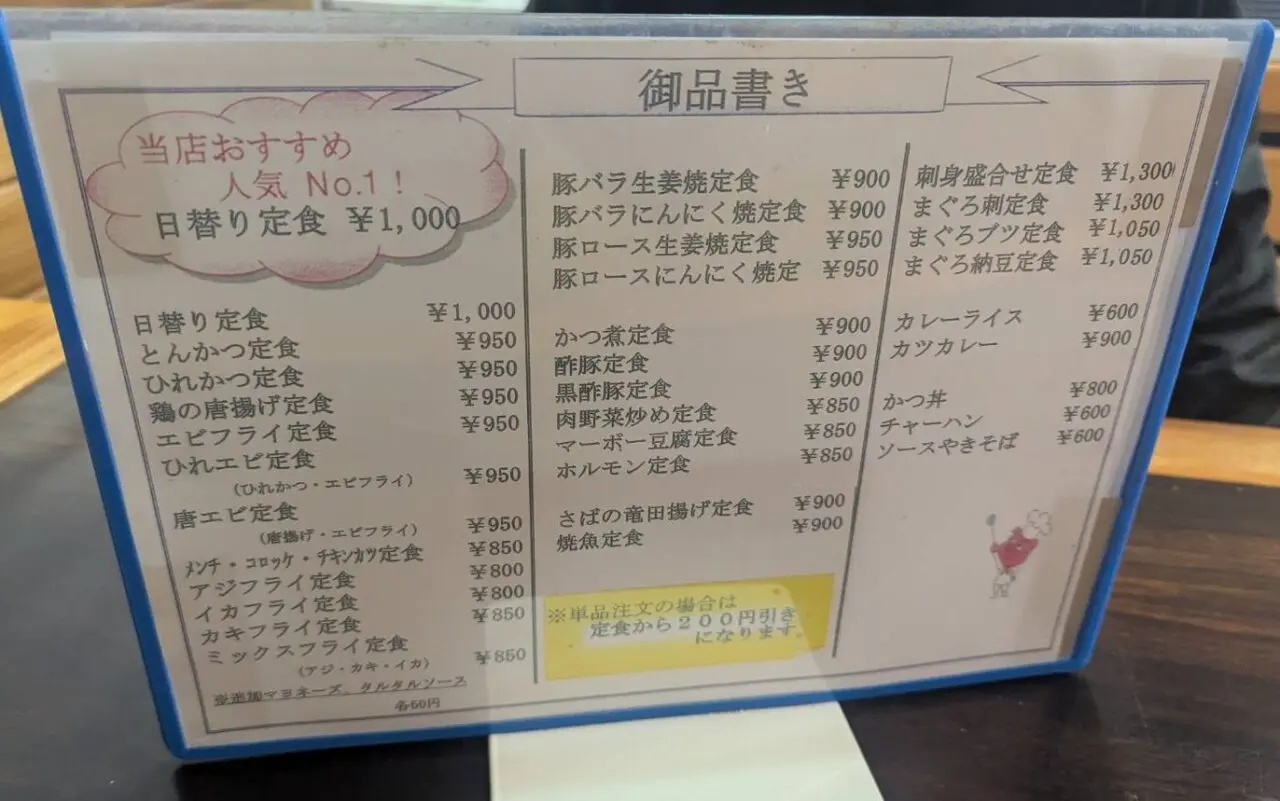 御品書き
当店おすすめ
人気 No.1！
日替り定食 ¥1,000
日替り定食 ¥1,000
とんかつ定食 ¥950
ひれかつ定食 ¥950
鶏の唐揚げ定食 ¥950
エビフライ定食 ¥950
ひれエビ定食
(ひれかつ・エビフライ) ¥950
唐エビ定食
(唐揚げ・エビフライ) ¥950
メンチ・コロッケ・チキンカツ定食 ¥850
アジフライ定食 ¥800
イカフライ定食 ¥800
カキフライ定食 ¥850
ミックスフライ定食
(アジ・カキ・イカ) ¥850
※追加マヨネーズ、タルタルソース
各50円
豚バラ生姜焼定食 ¥900
豚バラにんにく焼定食 ¥900
豚ロース生姜焼定食 ¥950
豚ロースにんにく焼定 ¥950
かつ煮定食 ¥900
酢豚定食 ¥900
黒酢豚定食 ¥900
肉野菜炒め定食 ¥850
マーボー豆腐定食 ¥850
ホルモン定食 ¥850
さばの竜田揚げ定食 ¥900
焼魚定食 ¥900
※単品注文の場合は
定食から２００円引き
になります。
刺身盛合せ定食 ¥1,300
まぐろ刺定食 ¥1,300
まぐろブツ定食 ¥1,050
まぐろ納豆定食 ¥1,050
カレーライス ¥600
カツカレー ¥900
かつ丼 ¥800
チャーハン ¥600
ソースやきそば ¥600